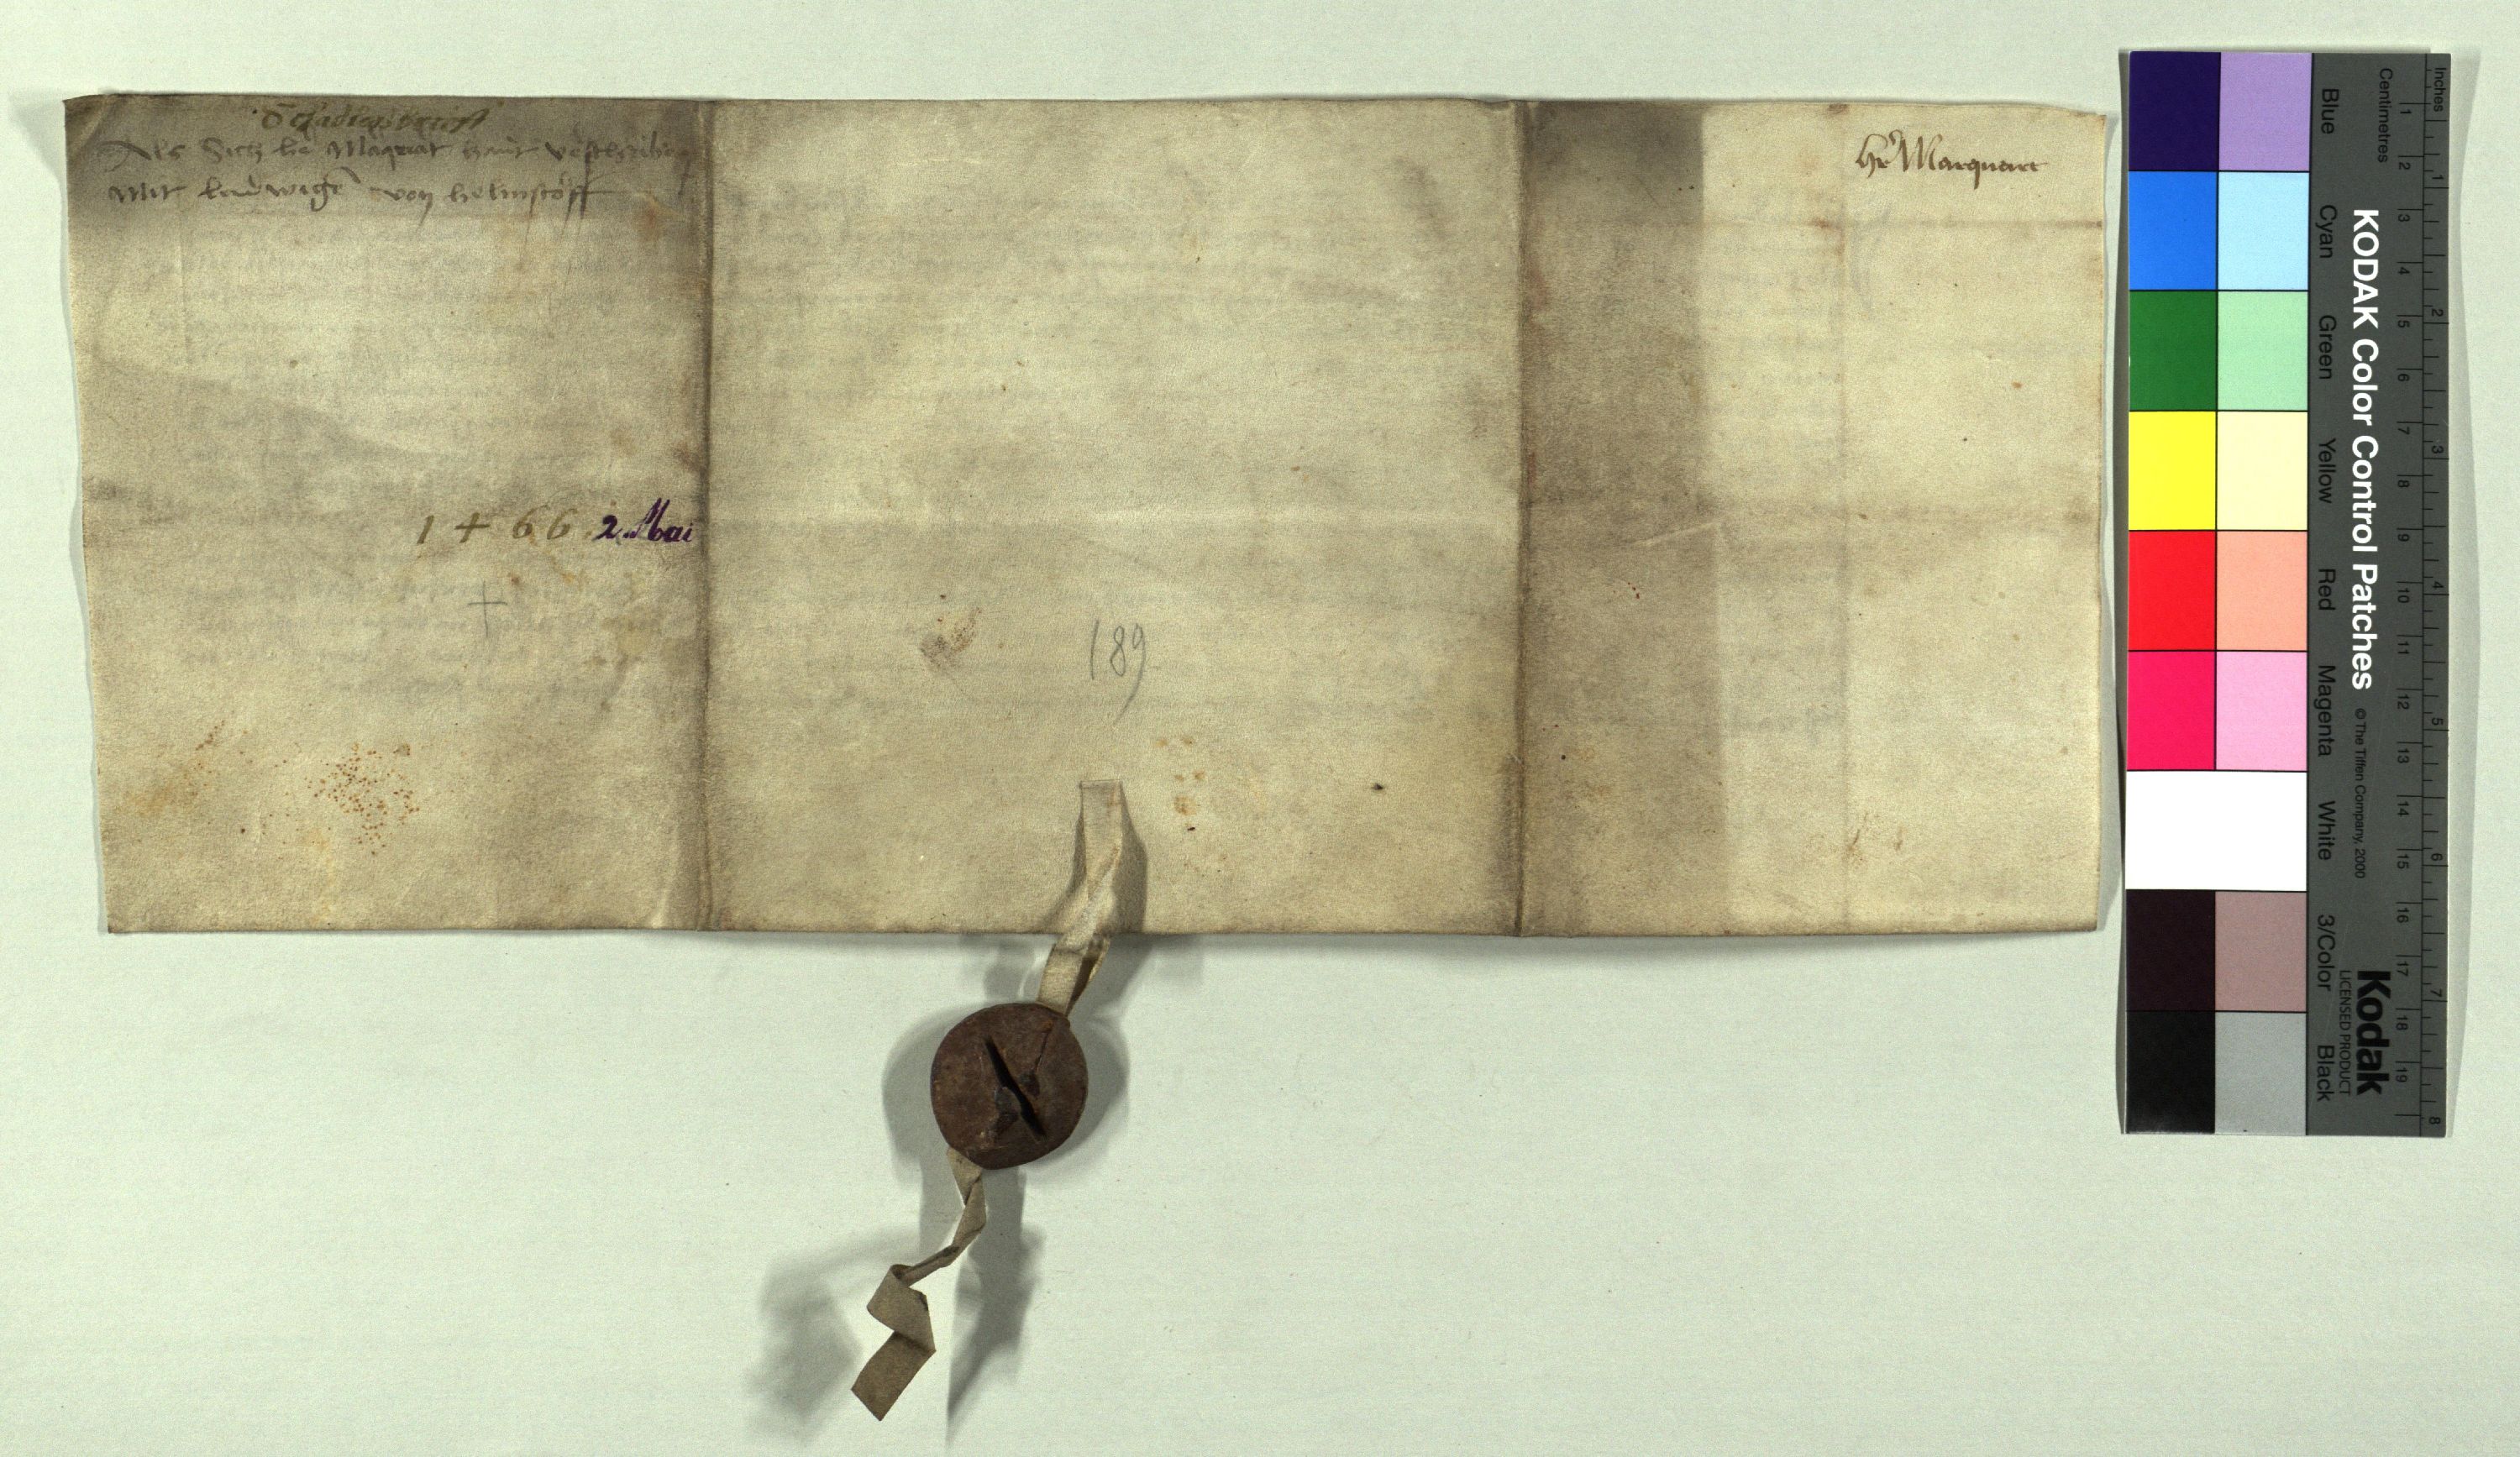 Als Sich he Marquat hait vschriben
Mit ludwige von helmstoff
hr Marquart
1466 2. Mai
+
189
KODAK Color Control Patches
© The Tiffen Company, 2000
Kodak
LICENSED PRODUCT
Blue Cyan Green Yellow Red Magenta White 3/Color Black
Centimetres
1 2 3 4 5 6 7 8 9 10 11 12 13 14 15 16 17 18 19
Inches
1 2 3 4 5 6 7 8